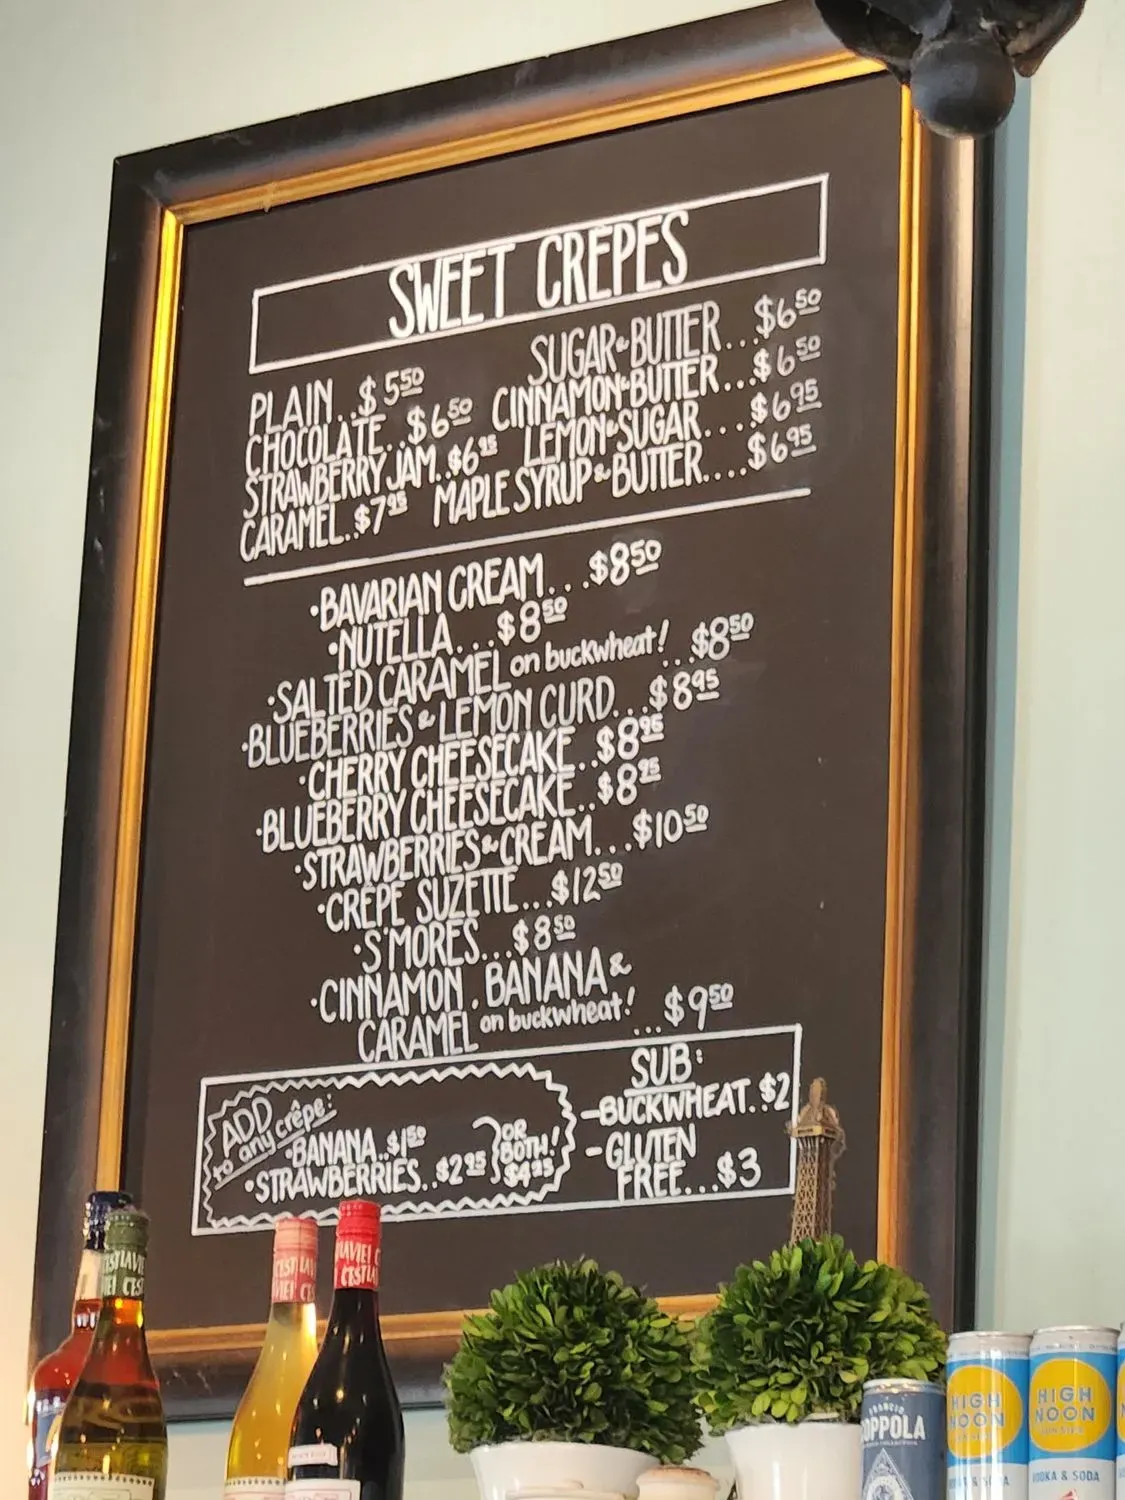 SWEET CRÊPES
PLAIN..$5.50
CHOCOLATE..$6.50
STRAWBERRY JAM..$6.95
CARAMEL..$7.95
SUGAR & BUTTER...$6.50
CINNAMON & BUTTER...$6.50
LEMON & SUGAR....$6.95
MAPLE SYRUP & BUTTER....$6.95
•BAVARIAN CREAM...$8.50
•NUTELLA...$8.50
•SALTED CARAMEL on buckwheat! ...$8.50
•BLUEBERRIES & LEMON CURD...$8.95
•CHERRY CHEESECAKE..$8.95
•BLUEBERRY CHEESECAKE..$8.95
•STRAWBERRIES & CREAM...$10.50
•CRÊPE SUZETTE...$12.50
•S'MORES...$8.50
•CINNAMON, BANANA &
CARAMEL on buckwheat! ...$9.50
ADD
to any crêpe:
•BANANA..$1.50
•STRAWBERRIES..$2.95
OR
BOTH!
$4.95
SUB:
-BUCKWHEAT..$2
-GLUTEN
FREE...$3
C'EST LA VIE!
COPPOLA
HIGH
NOON
VODKA & SODA
HIGH
NOON
VODKA & SODA